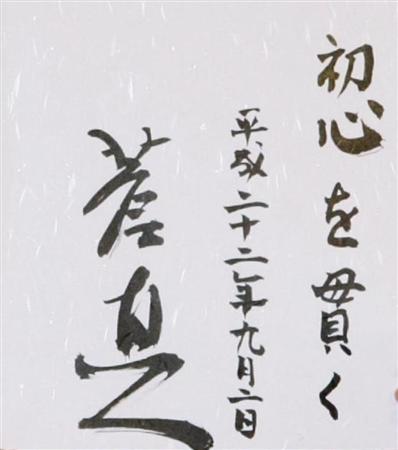 初心を貫く
平成二十二年九月二日
菅直人